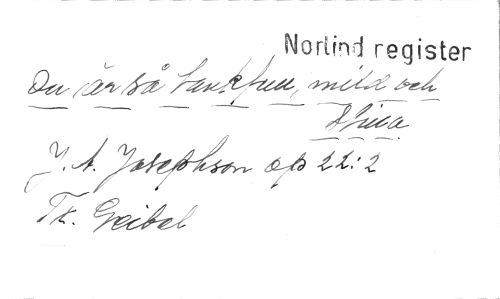 Norlind register
Du är så tankfull, mild och
stilla
J. A. Josephson op 22:2
Tx. Geibel